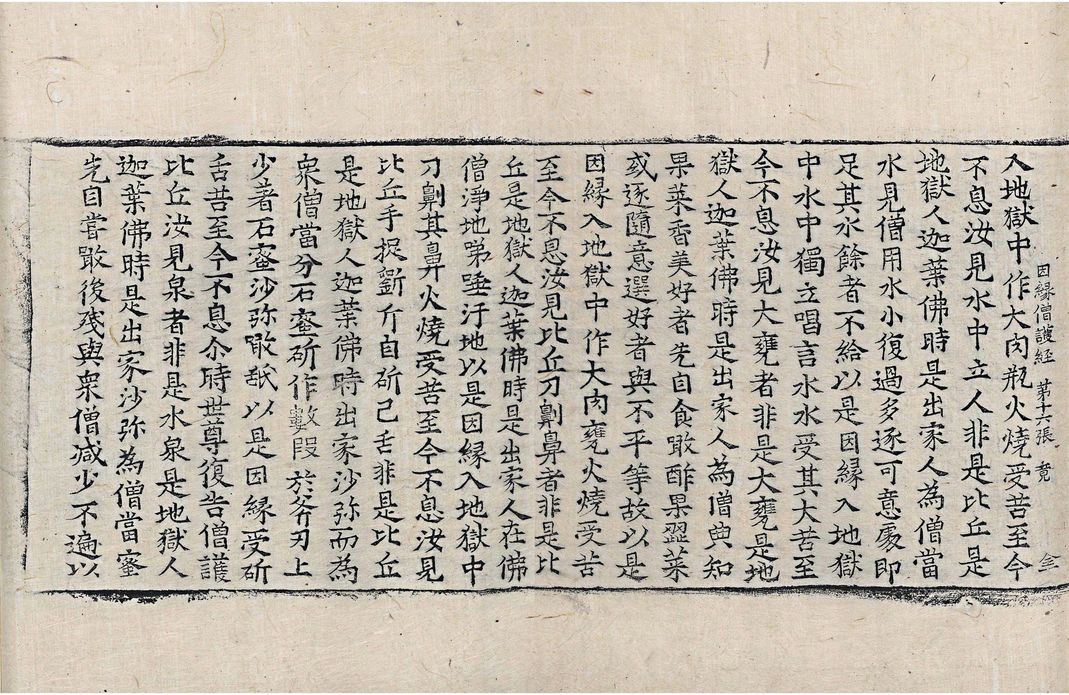 因縁僧護經 第十六張 竟
入地獄中作大肉瓶火燒受苦至今
不息汝見水中立人非是比丘是
地獄人迦葉佛時是出家人為僧當
水見僧用水小復過多逐可意處即
足其水餘者不給以是因縁入地獄
中水中獨立唱言水水受其大苦至
今不息汝見大甕者非是大甕是地
獄人迦葉佛時是出家人為僧典知
果菜香美好者先自食噉酢果澀菜
或逐隨意選好者與不平等故以是
因縁入地獄中作大肉甕火燒受苦
至今不息汝見比丘刀劓鼻者非是比
丘是地獄人迦葉佛時是出家人在佛
僧淨地啼唾汙地以是因縁入地獄中
刀劓其鼻火燒受苦至今不息汝見
比丘手捉斲斤自斫己舌非是比丘
是地獄人迦葉佛時出家沙弥而為
衆僧當分石蜜斫作數段於斧刃上
少著石蜜沙弥噉舐以是因縁受斫
舌苦至今不息尒時世尊復告僧護
比丘汝見泉者非是水泉是地獄人
迦葉佛時是出家沙弥為僧當蜜
先自嘗噉後殘與衆僧減少不遍以